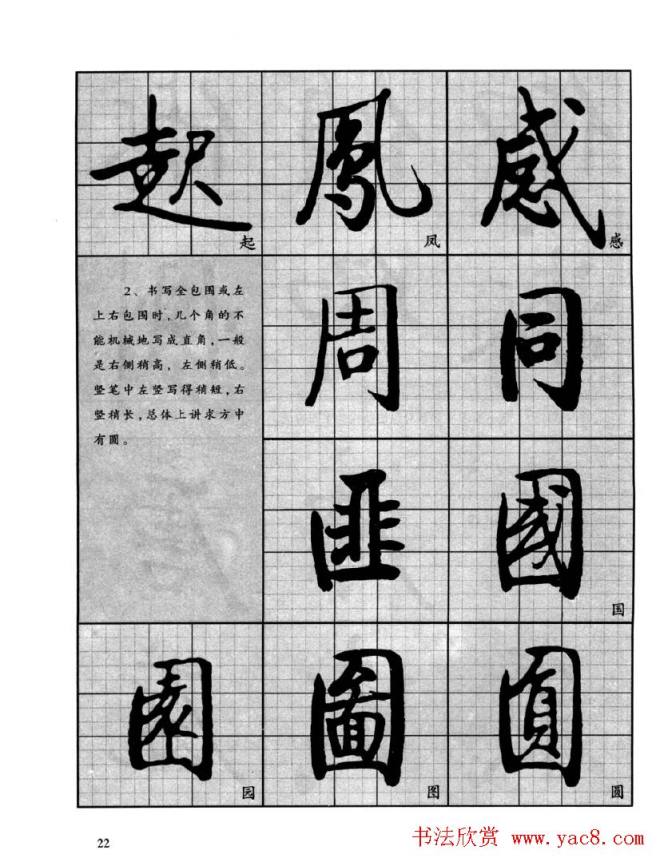 起 鳳 感
起 凤 感
2、书写全包围或左
上右包围时,几个角的不
能机械地写成直角,一般
是右侧稍高,左侧稍低。
竖笔中左竖写得稍短,右
竖稍长,总体上讲求方中
有圆。
周 同
匪 國
国
園 圖 圓
园 图 圆
22
书法欣赏 www.yac8.com